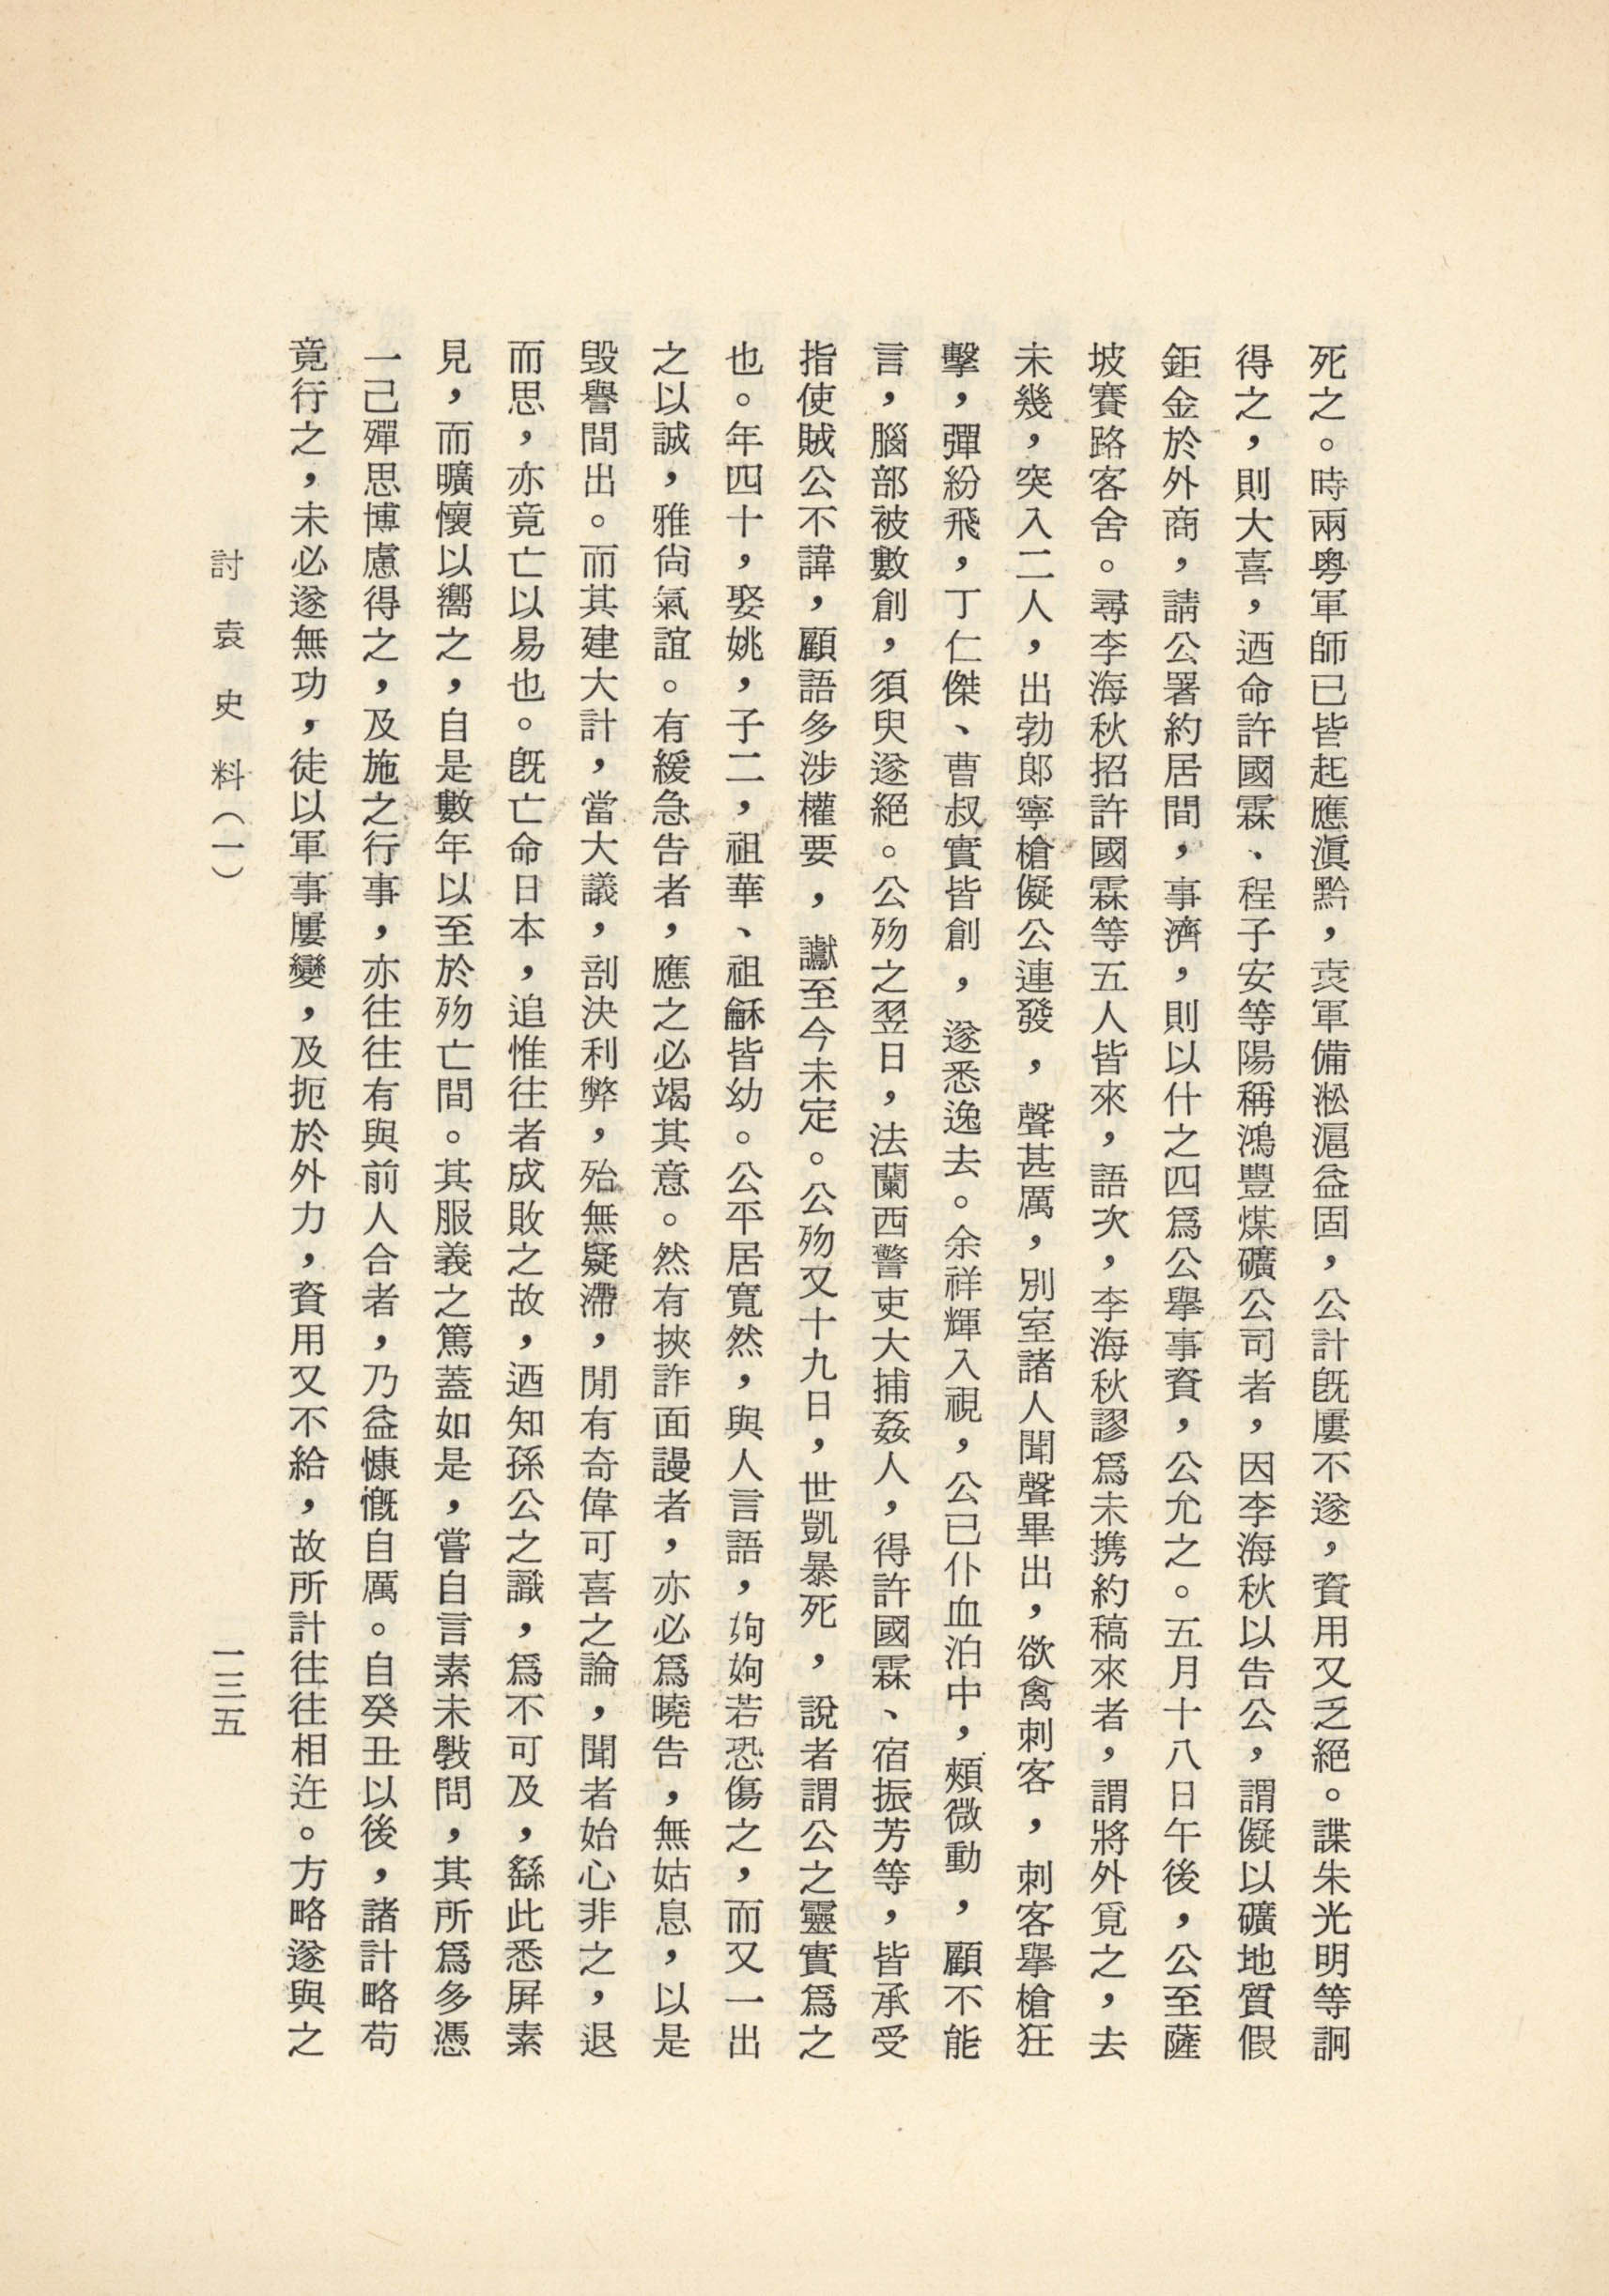 死之。時兩粵軍師已皆起應滇黔，袁軍備淞滬益固，公計旣屢不遂，資用又乏絕。諜朱光明等詗
得之，則大喜，迺命許國霖、程子安等陽稱鴻豐煤礦公司者，因李海秋以告公，謂儗以礦地質假
鉅金於外商，請公署約居間，事濟，則以什之四爲公舉事資，公允之。五月十八日午後，公至薩
坡賽路客舍。尋李海秋招許國霖等五人皆來，語次，李海秋謬爲未携約稿來者，謂將外覓之，去
未幾，突入二人，出勃郎寧槍儗公連發，聲甚厲，別室諸人聞聲畢出，欲禽刺客，刺客舉槍狂
擊，彈紛飛，丁仁傑、曹叔實皆創，遂悉逸去。余祥輝入視，公已仆血泊中，頰微動，顧不能
言，腦部被數創，須臾遂絕。公歾之翌日，法蘭西警吏大捕姦人，得許國霖、宿振芳等，皆承受
指使賊公不諱，顧語多涉權要，讞至今未定。公歾又十九日，世凱暴死，說者謂公之靈實爲之
也。年四十，娶姚，子二，祖華、祖龢皆幼。公平居寬然，與人言語，姁姁若恐傷之，而又一出
之以誠，雅尙氣誼。有緩急告者，應之必竭其意。然有挾詐面謾者，亦必爲曉告，無姑息，以是
毀譽間出。而其建大計，當大議，剖決利弊，殆無疑滯，閒有奇偉可喜之論，聞者始心非之，退
而思，亦竟亡以易也。旣亡命日本，追惟往者成敗之故，迺知孫公之識，爲不可及，繇此悉屏素
見，而曠懷以嚮之，自是數年以至於歾亡間。其服義之篤蓋如是，嘗自言素未斅問，其所爲多憑
一己殫思博慮得之，及施之行事，亦往往有與前人合者，乃益慷慨自厲。自癸丑以後，諸計略苟
竟行之，未必遂無功，徒以軍事屢變，及扼於外力，資用又不給，故所計往往相迕。方略遂與之
討袁史料（一）
一三五